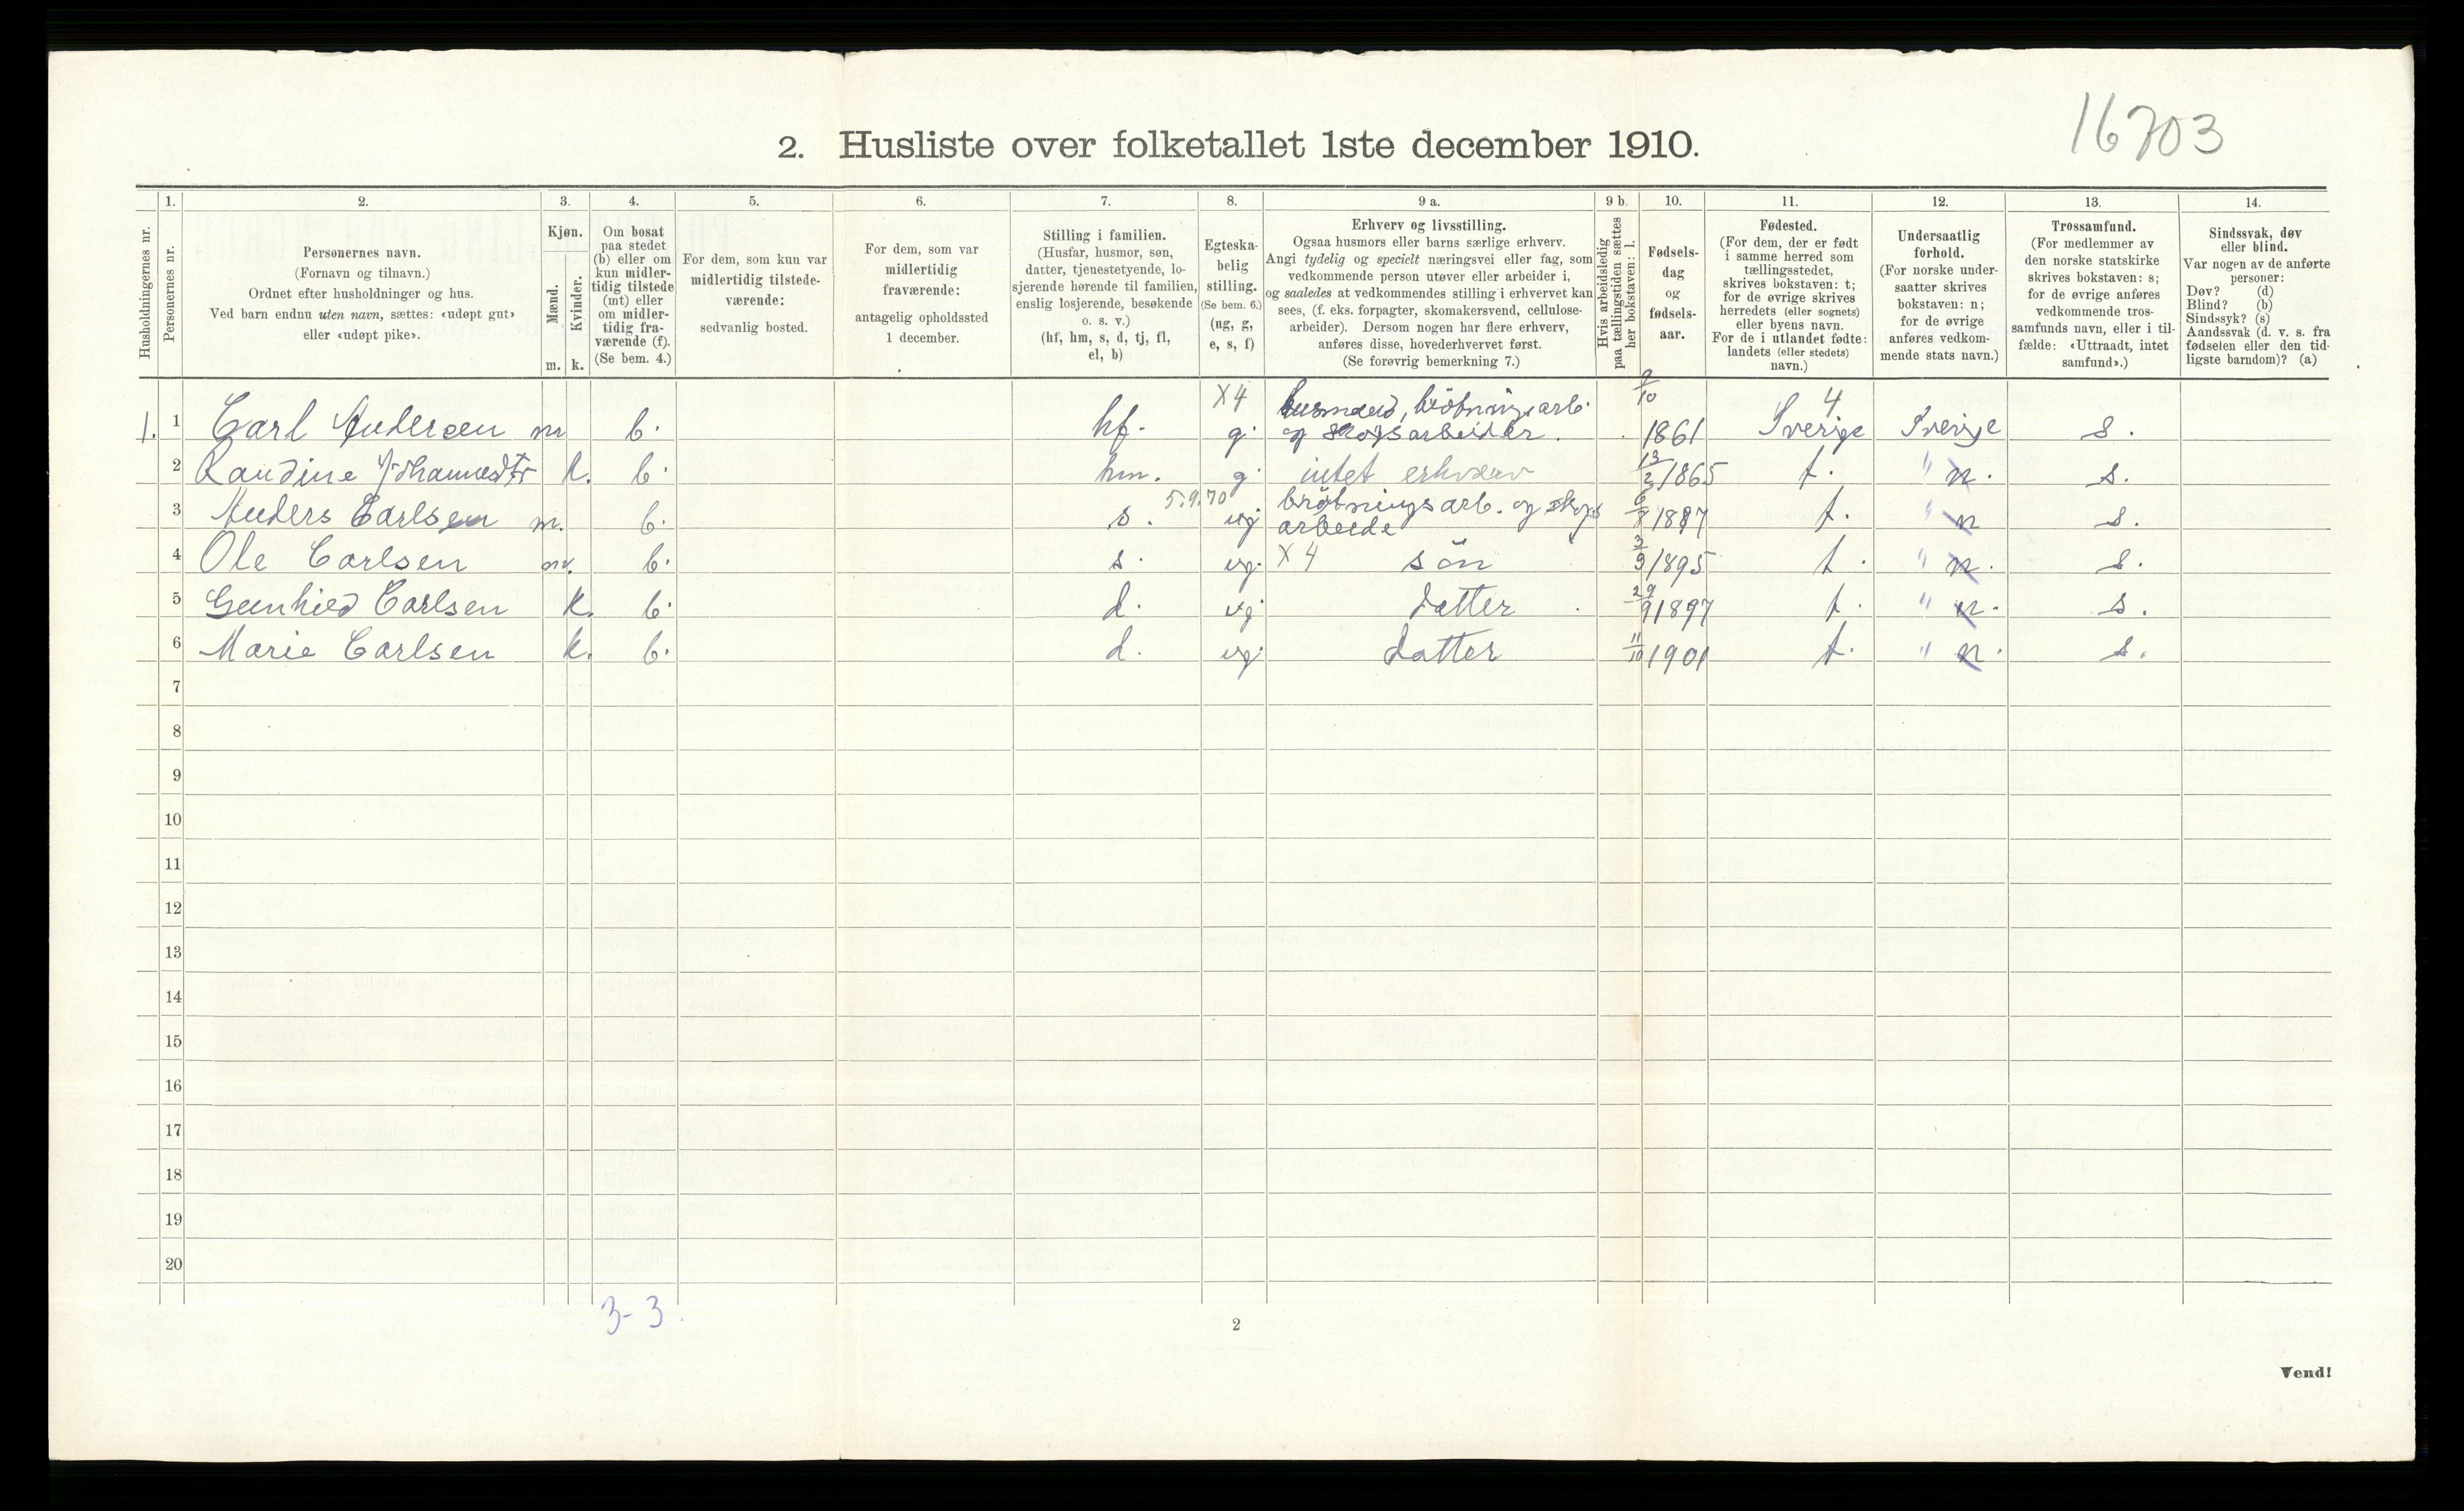 16703
2. Husliste over folketallet 1ste december 1910.
Husholdningernes nr.
1.
Personernes nr.
2.
Personernes navn.
(Fornavn og tilnavn.)
Ordnet efter husholdninger og hus.
Ved barn endnu uten navn, sættes: «udøpt gut»
eller «udøpt pike».
3.
Kjøn.
Mænd.
Kvinder.
m. k.
4.
Om bosat
paa stedet
(b) eller om
kun midler-
tidig tilstede
(mt) eller
om midler-
tidig fra-
værende (f).
(Se bem. 4.)
5.
For dem, som kun var
midlertidig tilstede-
værende:
sedvanlig bosted.
6.
For dem, som var
midlertidig
fraværende:
antagelig opholdssted
1 december.
7.
Stilling i familien.
(Husfar, husmor, søn,
datter, tjenestetyende, lo-
sjerende hørende til familien,
enslig losjerende, besøkende
o. s. v.)
(hf, hm, s, d, tj, fl,
el, b)
8.
Egteska-
belig
stilling.
(Se bem. 6.)
(ug, g,
e, s, f)
9 a.
Erhverv og livsstilling.
Ogsaa husmors eller barns særlige erhverv.
Angi tydelig og specielt næringsvei eller fag, som
vedkommende person utøver eller arbeider i,
og saaledes at vedkommendes stilling i erhvervet kan
sees, (f. eks. forpagter, skomakersvend, cellulose-
arbeider). Dersom nogen har flere erhverv,
anføres disse, hovederhvervet først.
(Se forøvrig bemerkning 7.)
9 b.
Hvis arbeidsledig
paa tællingstiden sættes
her bokstaven: l.
10.
Fødsels-
dag
og
fødsels-
aar.
11.
Fødested.
(For dem, der er født
i samme herred som
tællingsstedet,
skrives bokstaven: t;
for de øvrige skrives
herredets (eller sognets)
eller byens navn.
For de i utlandet fødte:
landets (eller stedets)
navn.)
12.
Undersaatlig
forhold.
(For norske under-
saatter skrives
bokstaven: n;
for de øvrige
anføres vedkom-
mende stats navn.)
13.
Trossamfund.
(For medlemmer av
den norske statskirke
skrives bokstaven: s;
for de øvrige anføres
vedkommende tros-
samfunds navn, eller i til-
fælde: «Uttraadt, intet
samfund».)
14.
Sindssvak, døv
eller blind.
Var nogen av de anførte
personer:
Døv? (d)
Blind? (b)
Sindssyk? (s)
Aandssvak (d. v. s. fra
fødselen eller den tid-
ligste barndom)? (a)
X4 husmand, brötningsarb. 9/10 4
1. 1 Carl Andersen m b. hf. g. og skogsarbeider. 1861 Sverige Sverige s.
2 Randine Johannesdtr k. b. hm. g. intet erhverv 13/3 1865 t. " n. s.
5.9.70 brötningsarb. og skogs
3 Anders Carlsen m. b. s. ug. arbeide 6/8 1887 t. " n s.
4 Ole Carlsen m. b. s. ug. X4 sön 3/9 1895 t. " n. s.
5 Gunhild Carlsen k. b. d. ug. datter 29/9 1897 t. " n. s.
6 Marie Carlsen k. b. d. ug. datter 11/10 1901 t. " n. s.
7
8
9
10
11
12
13
14
15
16
17
18
19
20
3-3.
2
Vend!